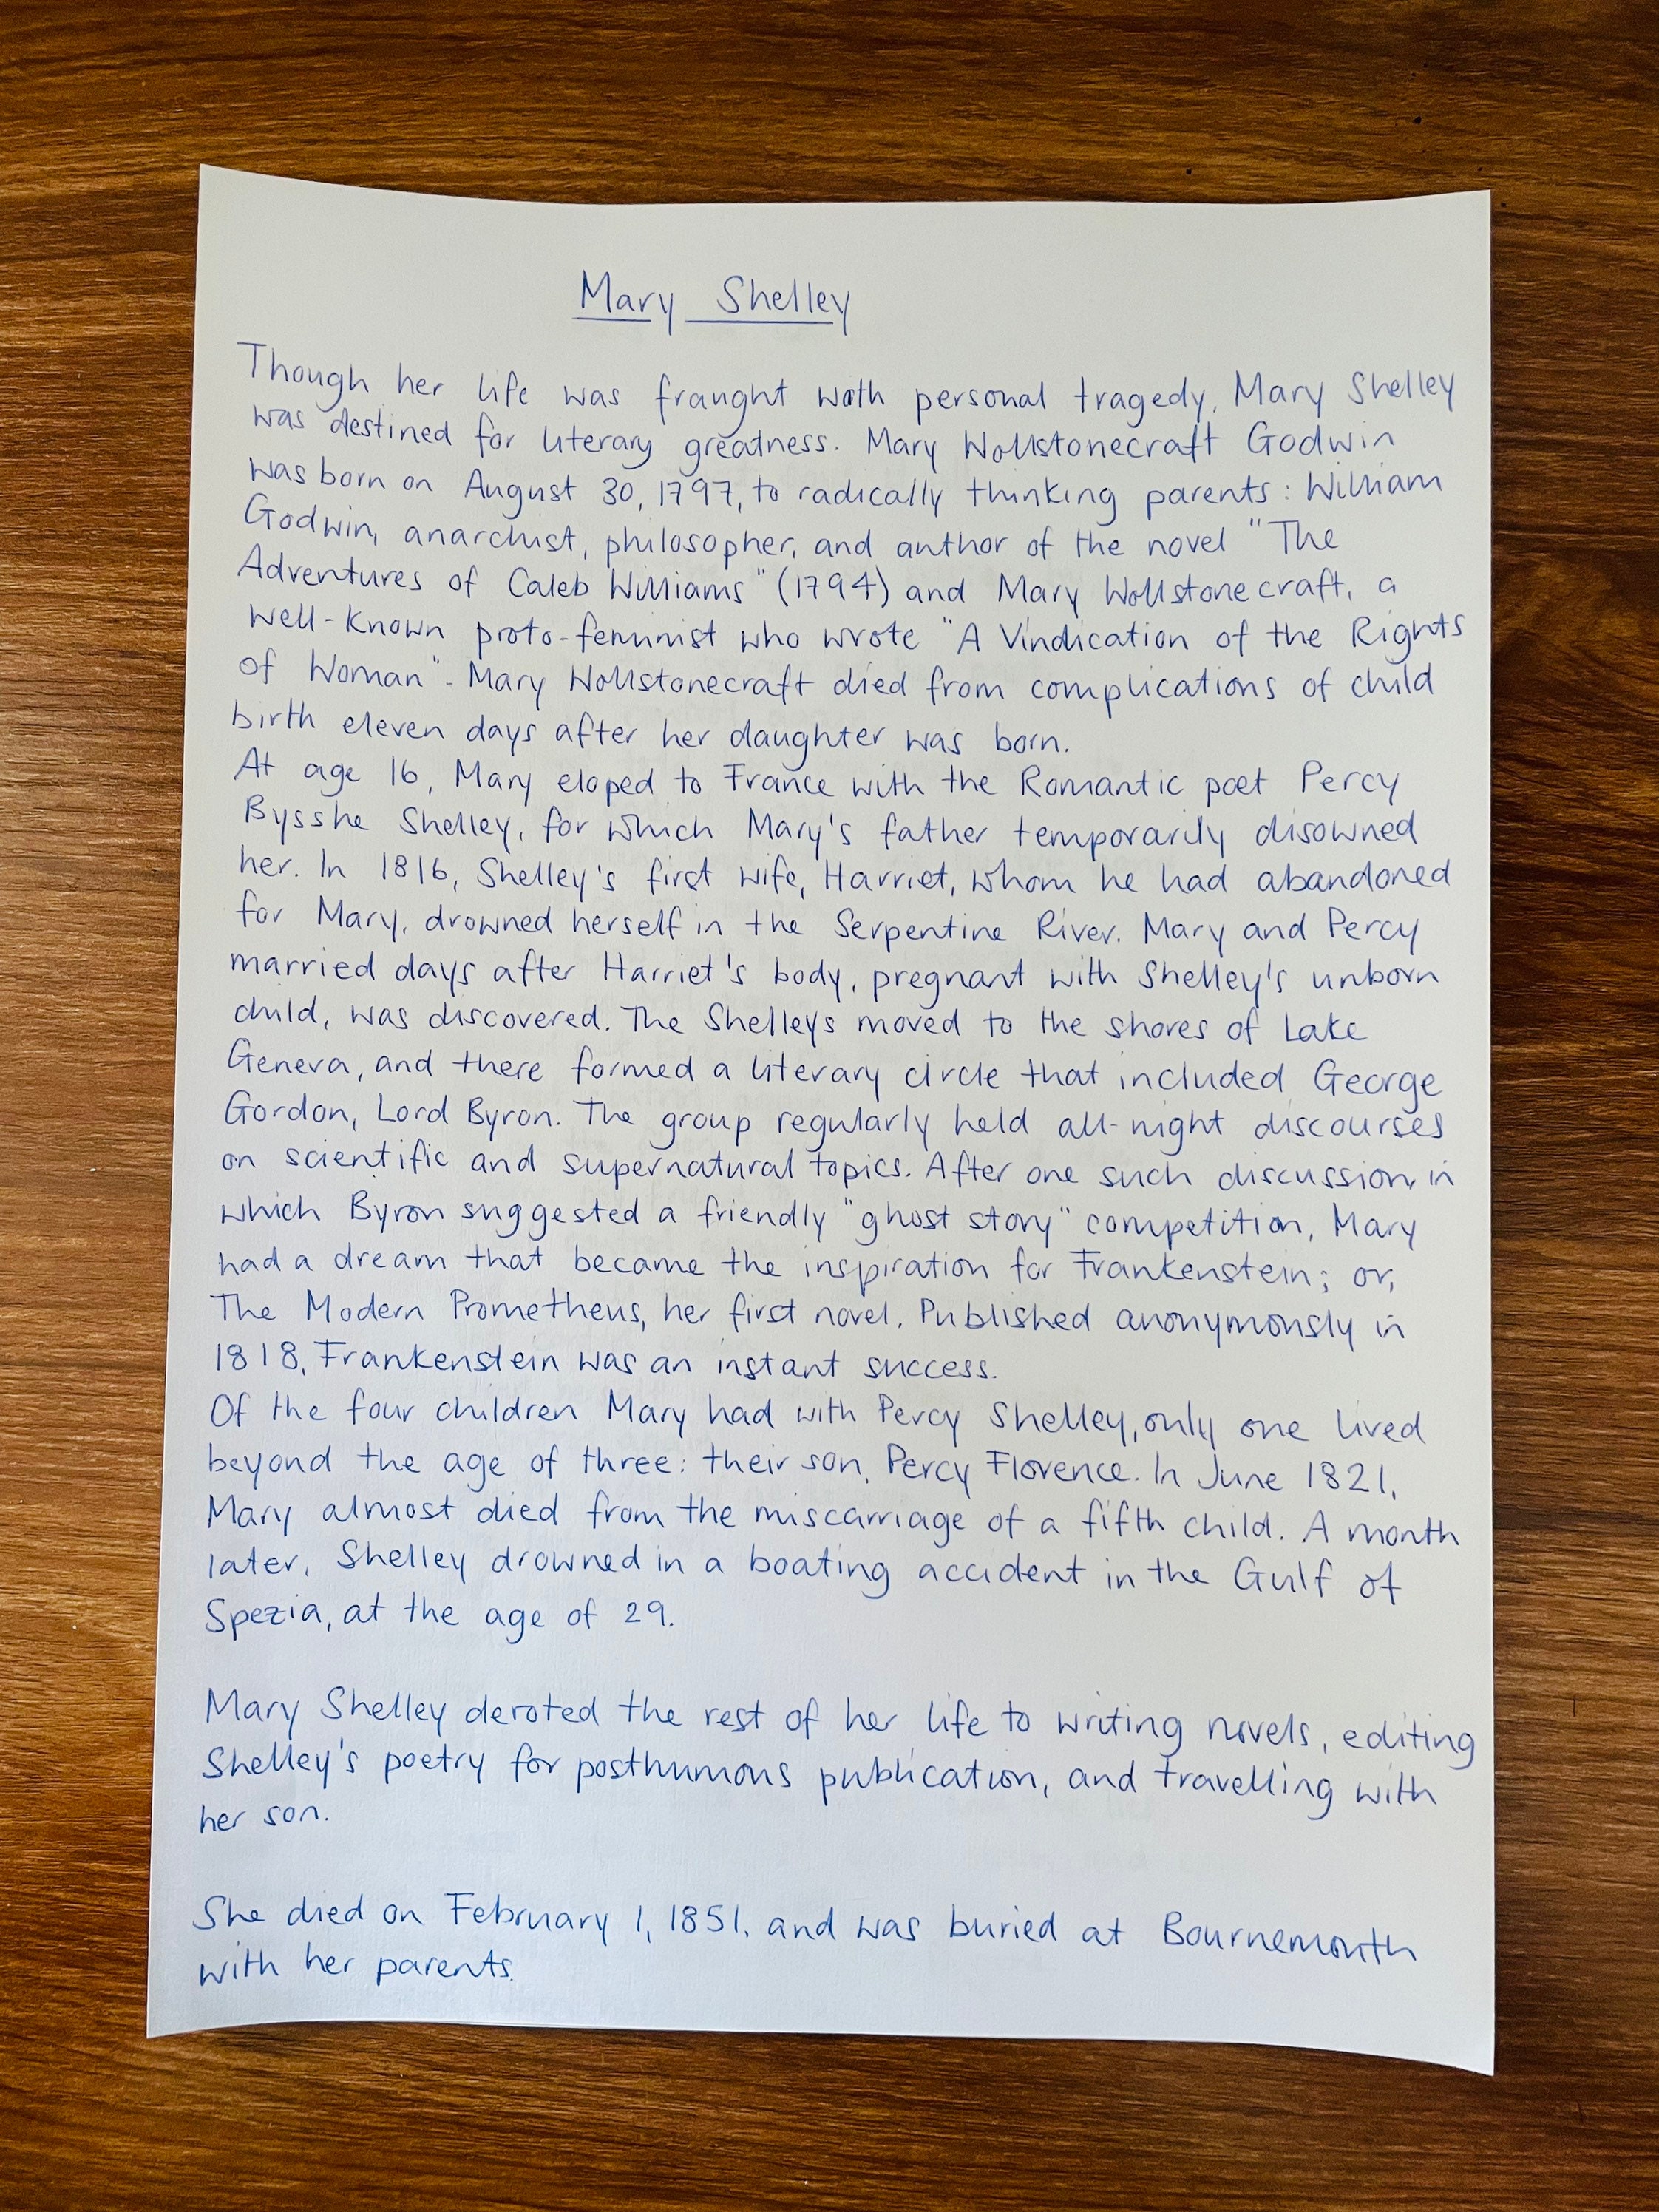 Mary Shelley
Though her life was fraught with personal tragedy, Mary Shelley
was destined for literary greatness. Mary Wollstonecraft Godwin
was born on August 30, 1797, to radically thinking parents: William
Godwin, anarchist, philosopher, and author of the novel "The
Adventures of Caleb Williams" (1794) and Mary Wollstonecraft, a
well-known proto-feminist who wrote "A Vindication of the Rights
of Woman". Mary Wollstonecraft died from complications of child
birth eleven days after her daughter was born.
At age 16, Mary eloped to France with the Romantic poet Percy
Bysshe Shelley, for which Mary's father temporarily disowned
her. In 1816, Shelley's first wife, Harriet, whom he had abandoned
for Mary, drowned herself in the Serpentine River. Mary and Percy
married days after Harriet's body, pregnant with Shelley's unborn
child, was discovered. The Shelleys moved to the shores of Lake
Geneva, and there formed a literary circle that included George
Gordon, Lord Byron. The group regularly held all-night discourses
on scientific and supernatural topics. After one such discussion, in
which Byron suggested a friendly "ghost story" competition, Mary
had a dream that became the inspiration for Frankenstein; or,
The Modern Prometheus, her first novel. Published anonymously in
1818, Frankenstein was an instant success.
Of the four children Mary had with Percy Shelley, only one lived
beyond the age of three: their son, Percy Florence. In June 1821,
Mary almost died from the miscarriage of a fifth child. A month
later, Shelley drowned in a boating accident in the Gulf of
Spezia, at the age of 29.
Mary Shelley devoted the rest of her life to writing novels, editing
Shelley's poetry for posthumous publication, and travelling with
her son.
She died on February 1, 1851, and was buried at Bournemouth
with her parents.